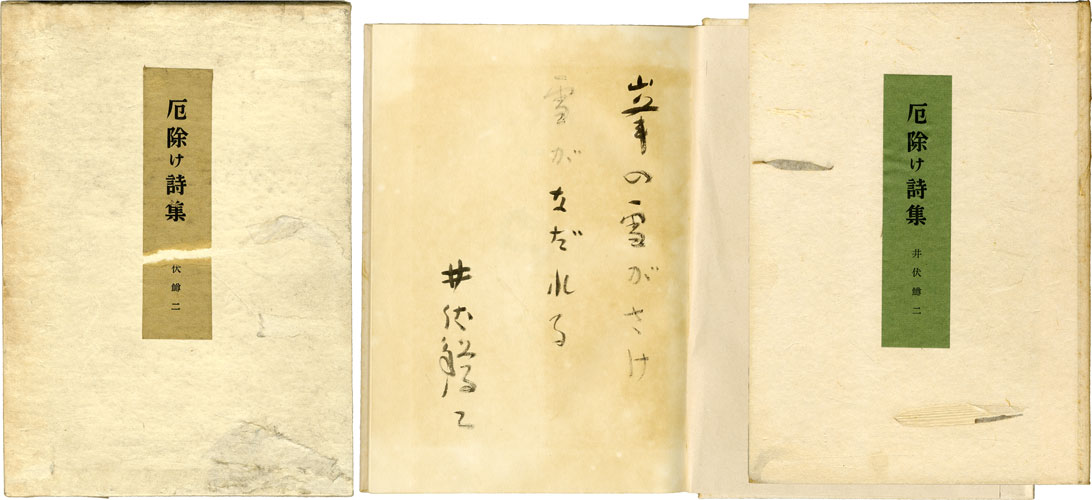 厄除け詩集
伏鱒二
峯の雪がさけ
雪がなだれる
井伏鱒二
厄除け詩集
井伏鱒二